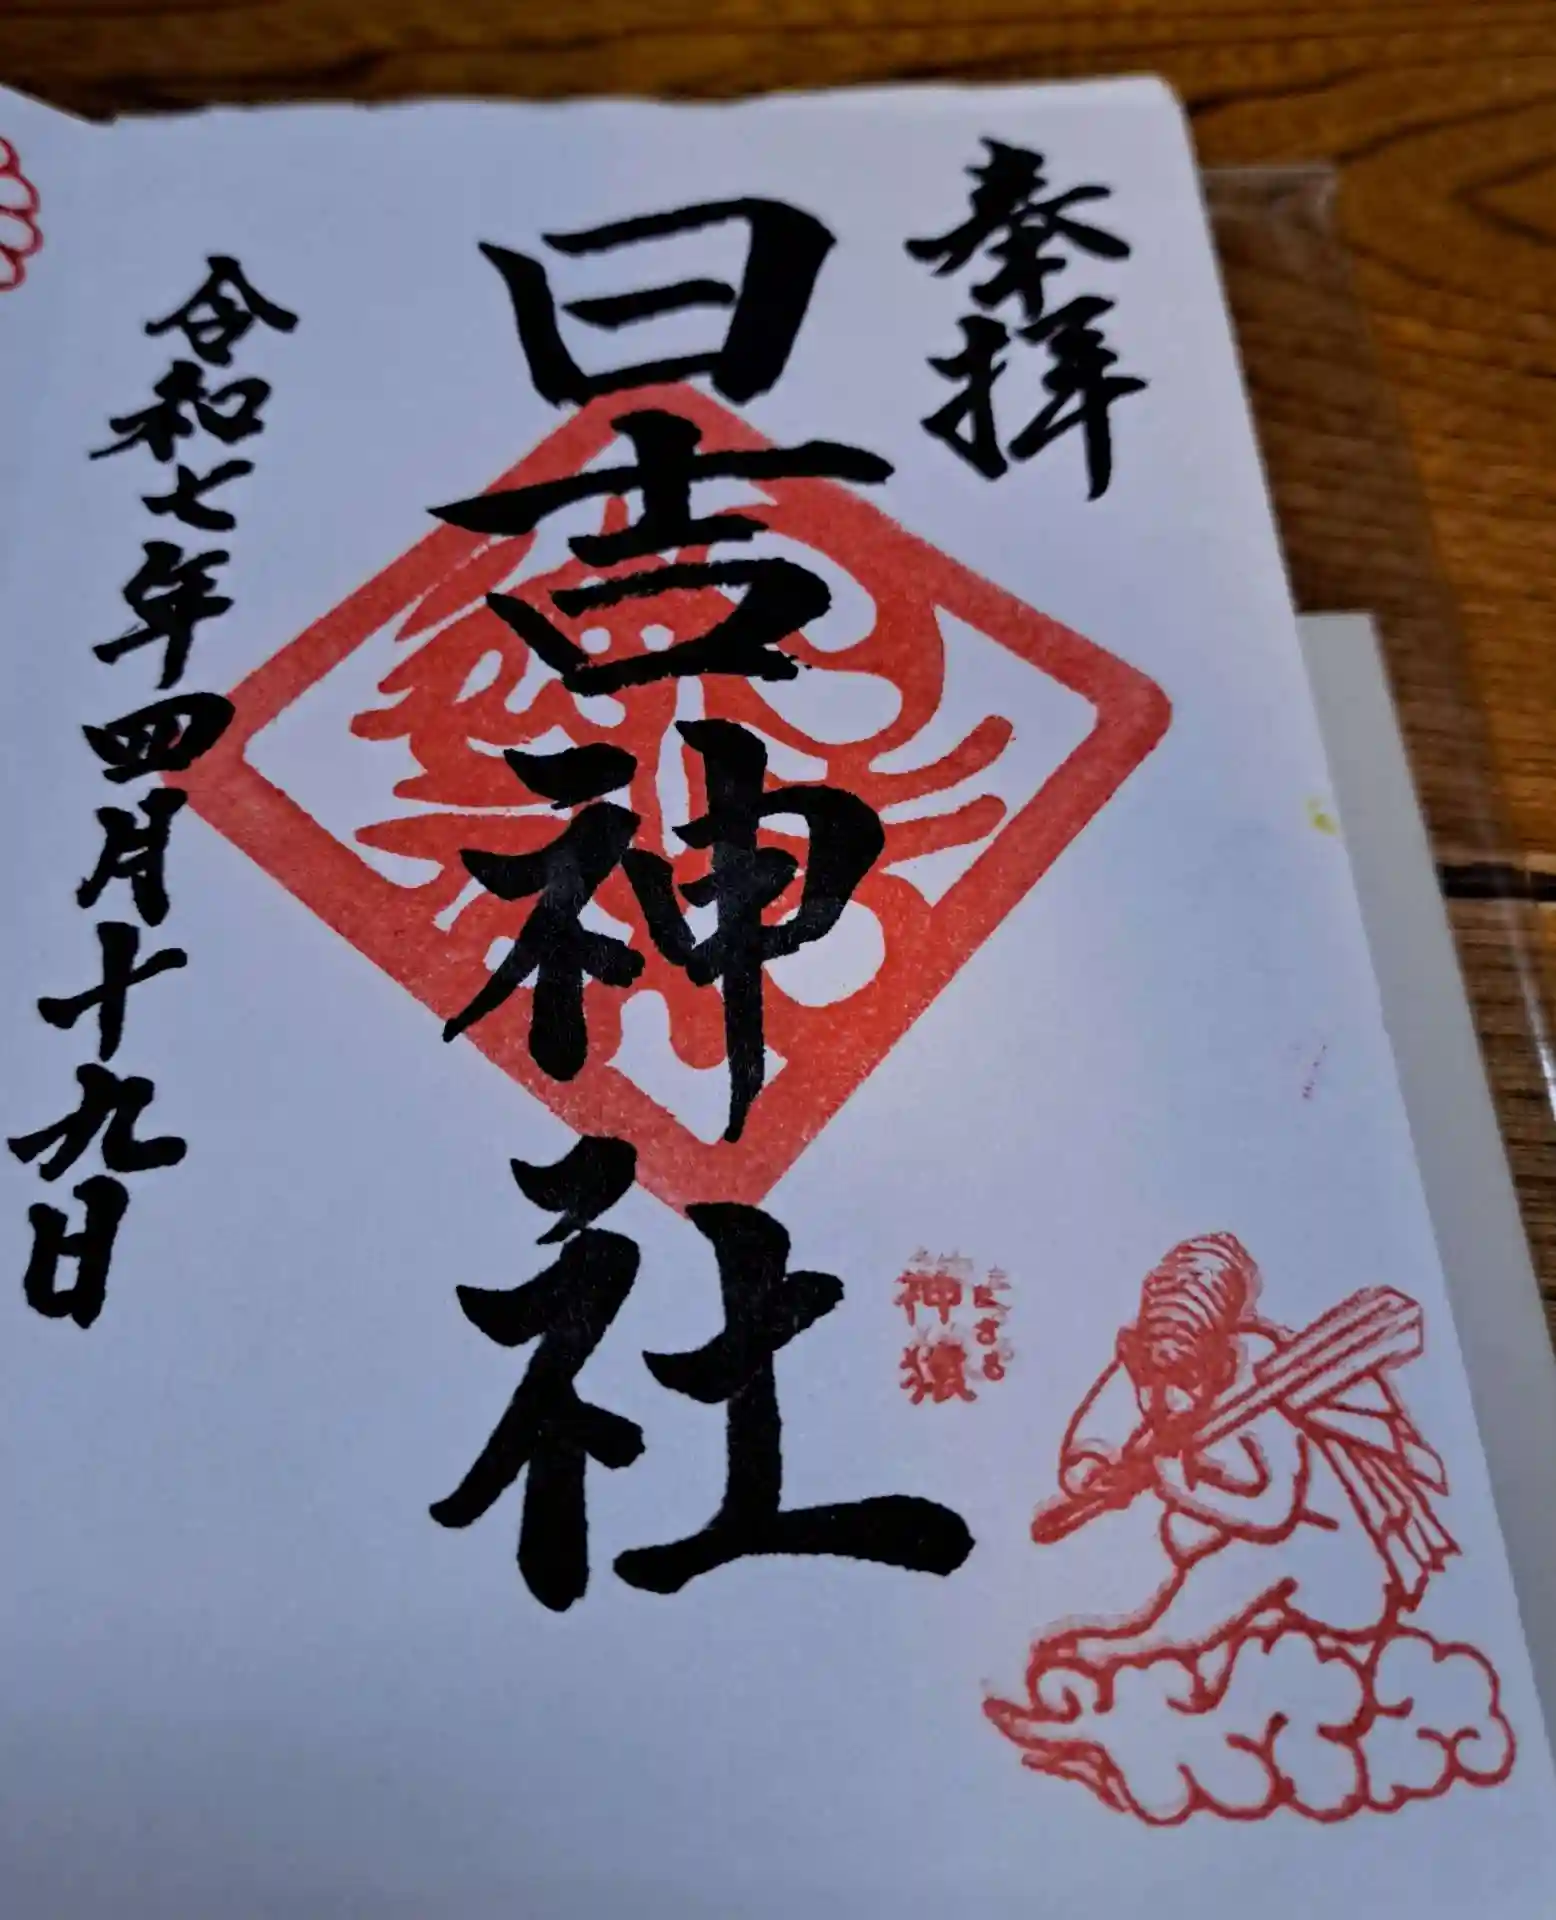 奉拝
日吉神社
令和七年四月十九日
神猿